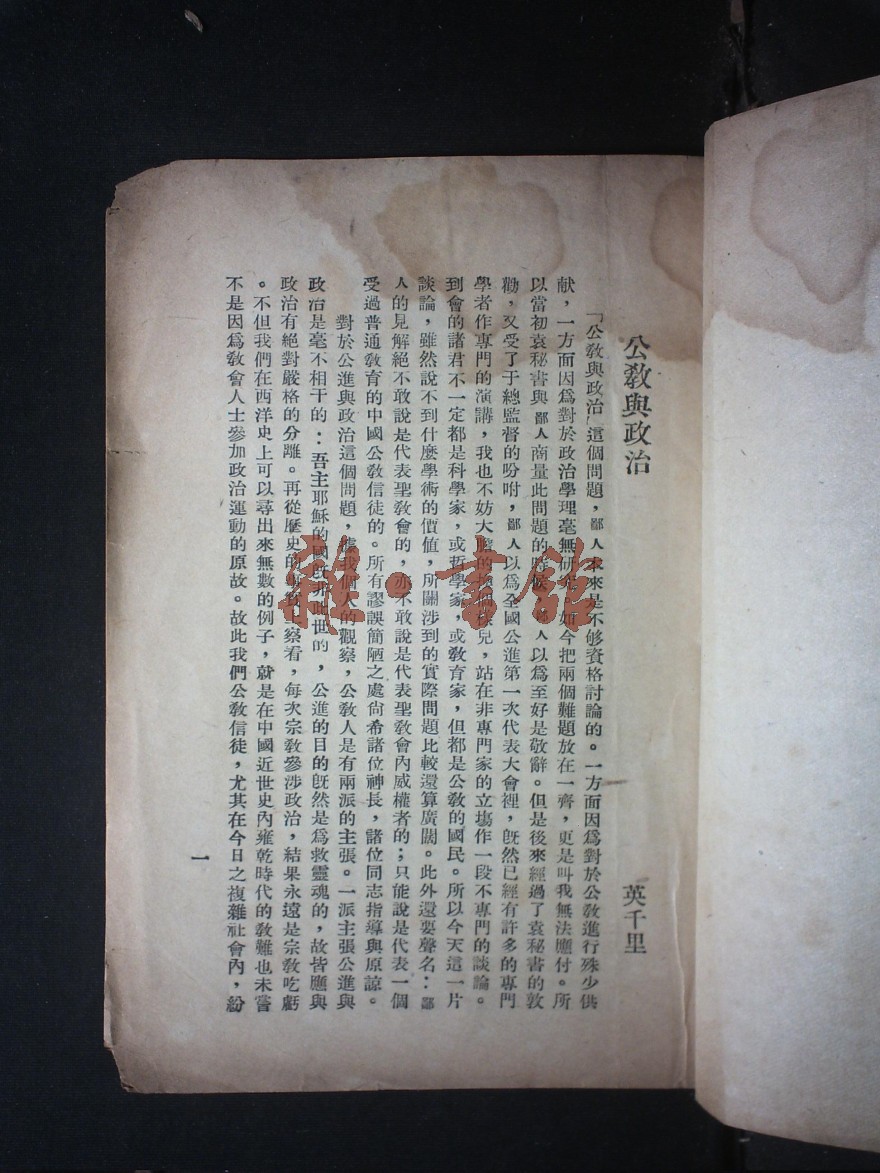 公教與政治
英千里
「公教與政治」這個問題，鄙人本來是不够資格討論的。一方面因爲對於公教進行殊少供
献，一方面因爲對於政治學理毫無研究，如今把兩個難題放在一齊，更是叫我無法應付。所
以當初袁秘書與鄙人商量此問題的時候，鄙人以爲至好是敬辭。但是後來經過了袁秘書的敦
勸，又受了于總監督的吩咐，鄙人以爲全國公進第一次代表大會裡，旣然已經有許多的專門
學者作專門的演講，我也不妨大膽的換個樣兒，站在非專門家的立塲作一段不專門的談論。
到會的諸君不一定都是科學家，或哲學家，或敎育家，但都是公敎的國民。所以今天這一片
談論，雖然說不到什麼學術的價値，所關涉到的實際問題比較還算廣闊。此外還要聲名：鄙
人的見解絕不敢說是代表聖敎會的，亦不敢說是代表聖敎會內威權者的；只能說是代表一個
受過普通敎育的中國公敎信徒的。所有謬誤簡陋之處尙希諸位神長，諸位同志指導與原諒。
對於公進與政治這個問題，據我個人的觀察，公敎人是有兩派的主張。一派主張公進與
政治是毫不相干的：吾主耶穌的國旣非此世的，公進的目的旣然是爲救靈魂的，故皆應與
政治有絕對嚴格的分離。再從歷史的事實上察看，每次宗敎參涉政治，結果永遠是宗敎吃虧
。不但我們在西洋史上可以尋出來無數的例子，就是在中國近世史內雍乾時代的敎難也未嘗
不是因爲敎會人士參加政治運動的原故。故此我們公敎信徒，尤其在今日之複雜社會內，紛
一
雜·書館